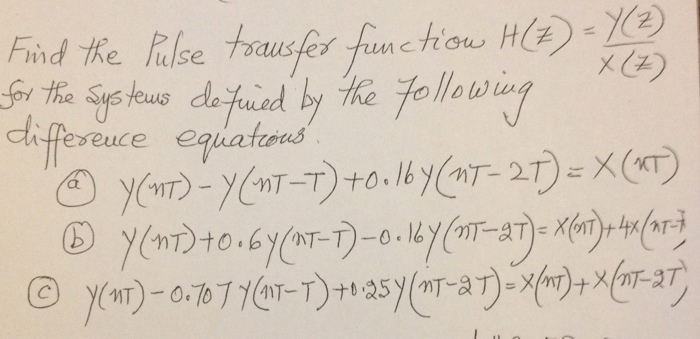 Find the Pulse transfer function H(Z) = Y(Z)/X(Z)
for the systems defined by the following
difference equations.
(a) Y(nT) - Y(nT-T) + 0.16Y(nT-2T) = X(nT)
(b) Y(nT) + 0.6Y(nT-T) - 0.16Y(nT-2T) = X(nT) + 4X(nT-T)
(c) Y(nT) - 0.707Y(nT-T) + 0.25Y(nT-2T) = X(nT) + X(nT-2T)